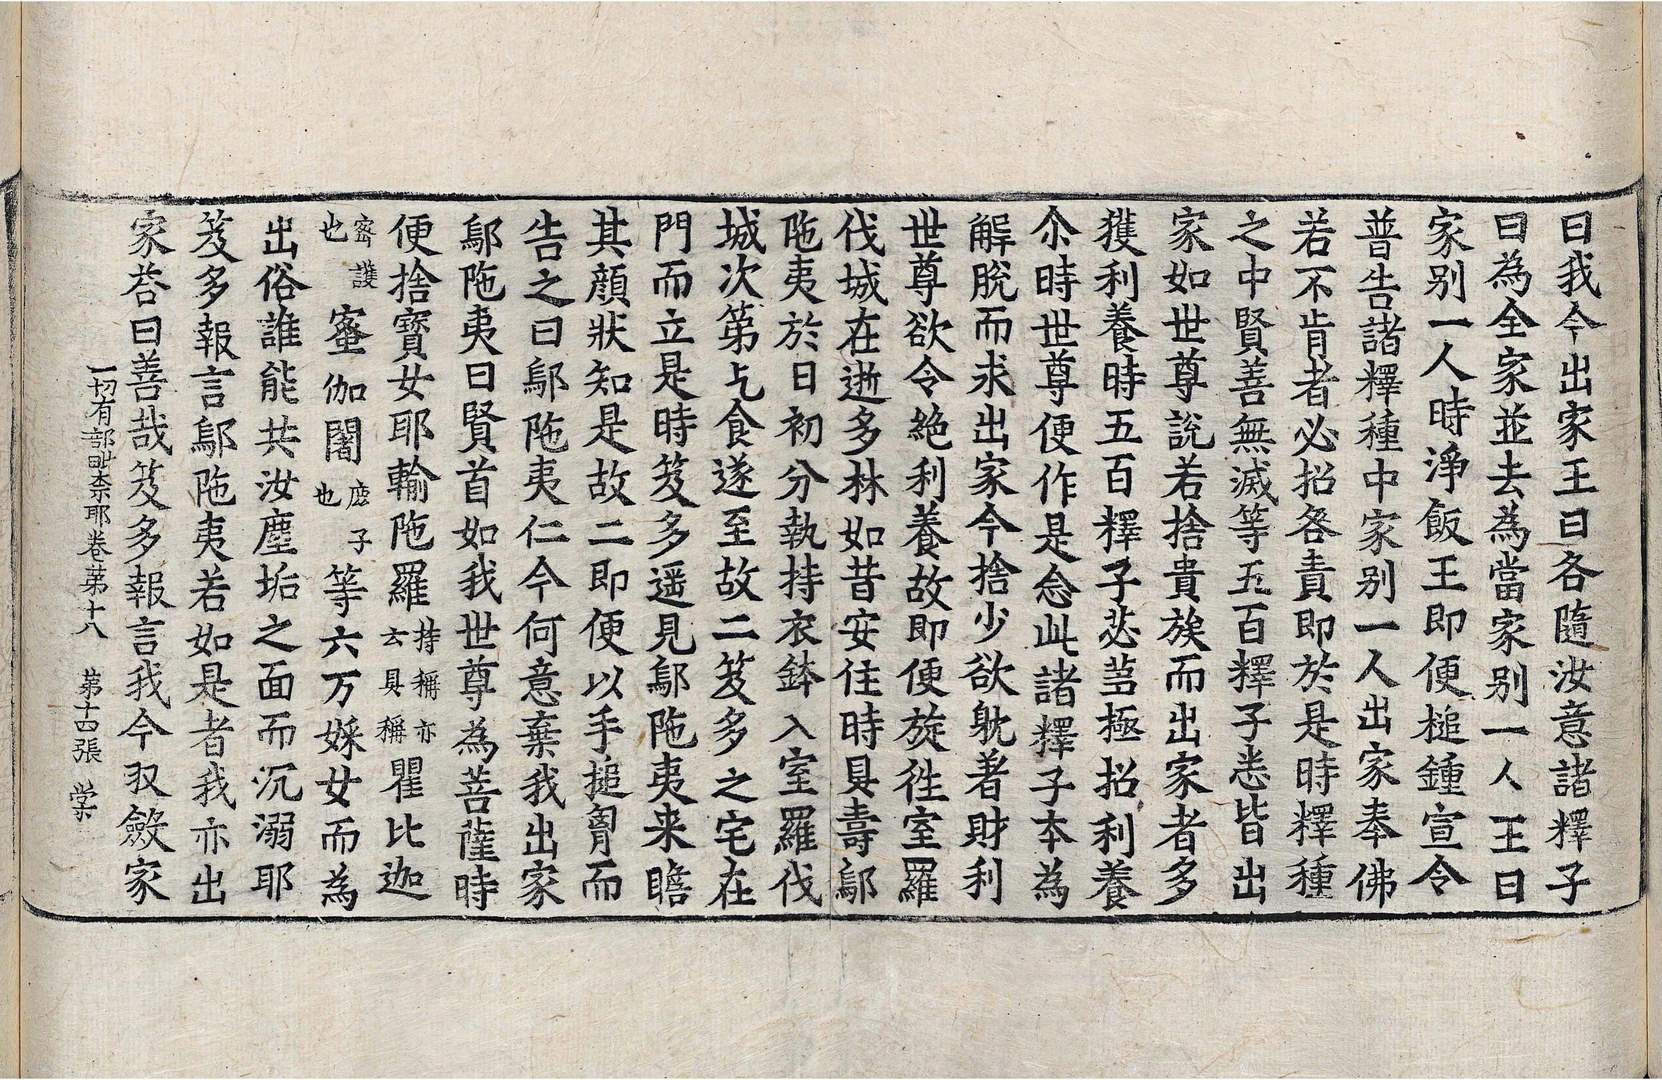 曰我今出家王曰各隨汝意諸釋子
曰為全家並去為當家別一人王曰
家別一人時淨飯王即便槌鍾宣令
普告諸釋種中家別一人出家奉佛
若不肯者必招咎責即於是時釋種
之中賢善無滅等五百釋子悉皆出
家如世尊說若捨貴族而出家者多
獲利養時五百釋子苾蒭極招利養
尒時世尊便作是念此諸釋子本為
解脫而求出家今捨少欲躭著財利
世尊欲令絕利養故即便旋徃室羅
伐城在逝多林如昔安住時具壽鄔
陁夷於日初分執持衣鉢入室羅伐
城次第乞食遂至故二笈多之宅在
門而立是時笈多遥見鄔陁夷来瞻
其顔狀知是故二即便以手搥胷而
告之曰鄔陁夷仁今何意棄我出家
鄔陁夷曰賢首如我世尊為菩薩時
便捨寳女耶輸陁羅持稱亦云具稱瞿比迦
密護也蜜伽闍鹿子也等六万婇女而為
出俗誰能共汝塵垢之面而沉溺耶
笈多報言鄔陁夷若如是者我亦出
家荅曰善哉笈多報言我今収斂家
一切有部毗柰耶卷苐十八 苐十四張 棠